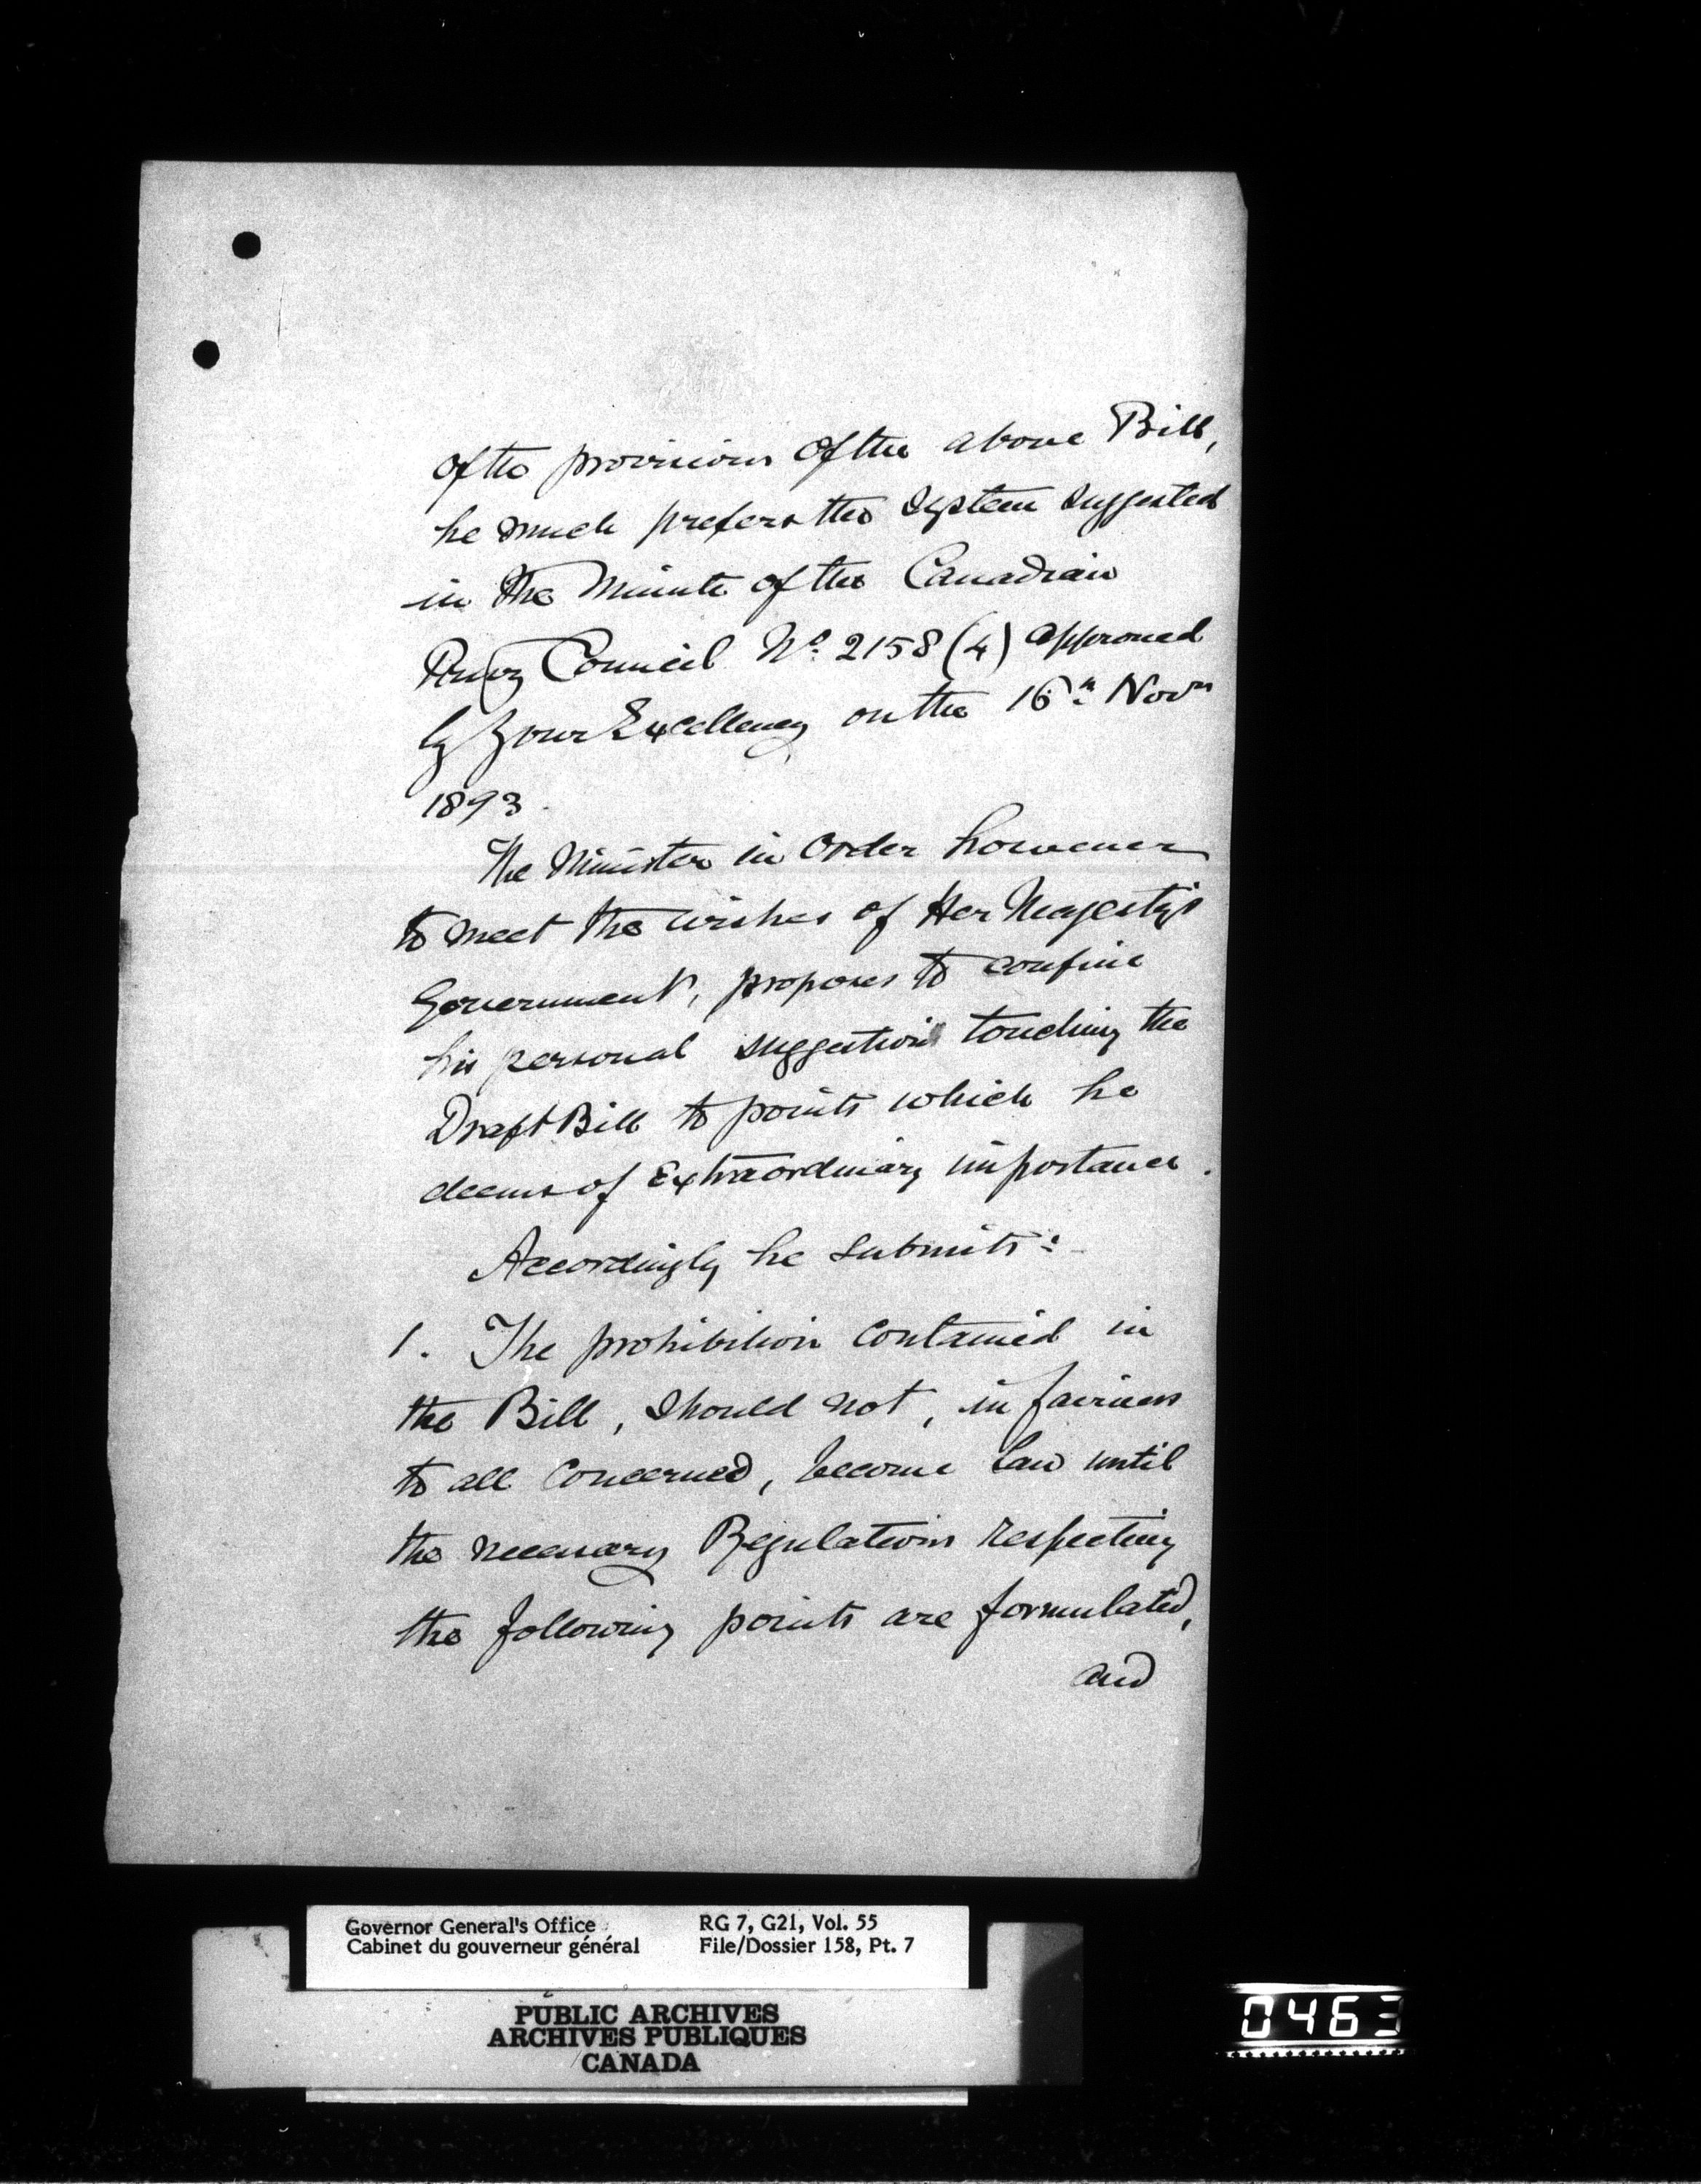 of the provisions of the above Bill,
he much prefers the System suggested
in the Minute of the Canadian
Privy Council No. 2158 (4) approved
by Your Excellency on the 16th Novr
1893.
The Minister in order however
to meet the wishes of Her Majesty's
Government, proposes to confine
his personal suggestions touching the
Draft Bill to points which he
deems of Extraordinary importance.
Accordingly he submits:-
1. The prohibition contained in
the Bill, should not, in fairness
to all concerned, become Law until
the necessary Regulations respecting
the following points are formulated,
and
Governor General's Office
Cabinet du gouverneur général
RG 7, G21, Vol. 55
File/Dossier 158, Pt. 7
PUBLIC ARCHIVES
ARCHIVES PUBLIQUES
CANADA
0463